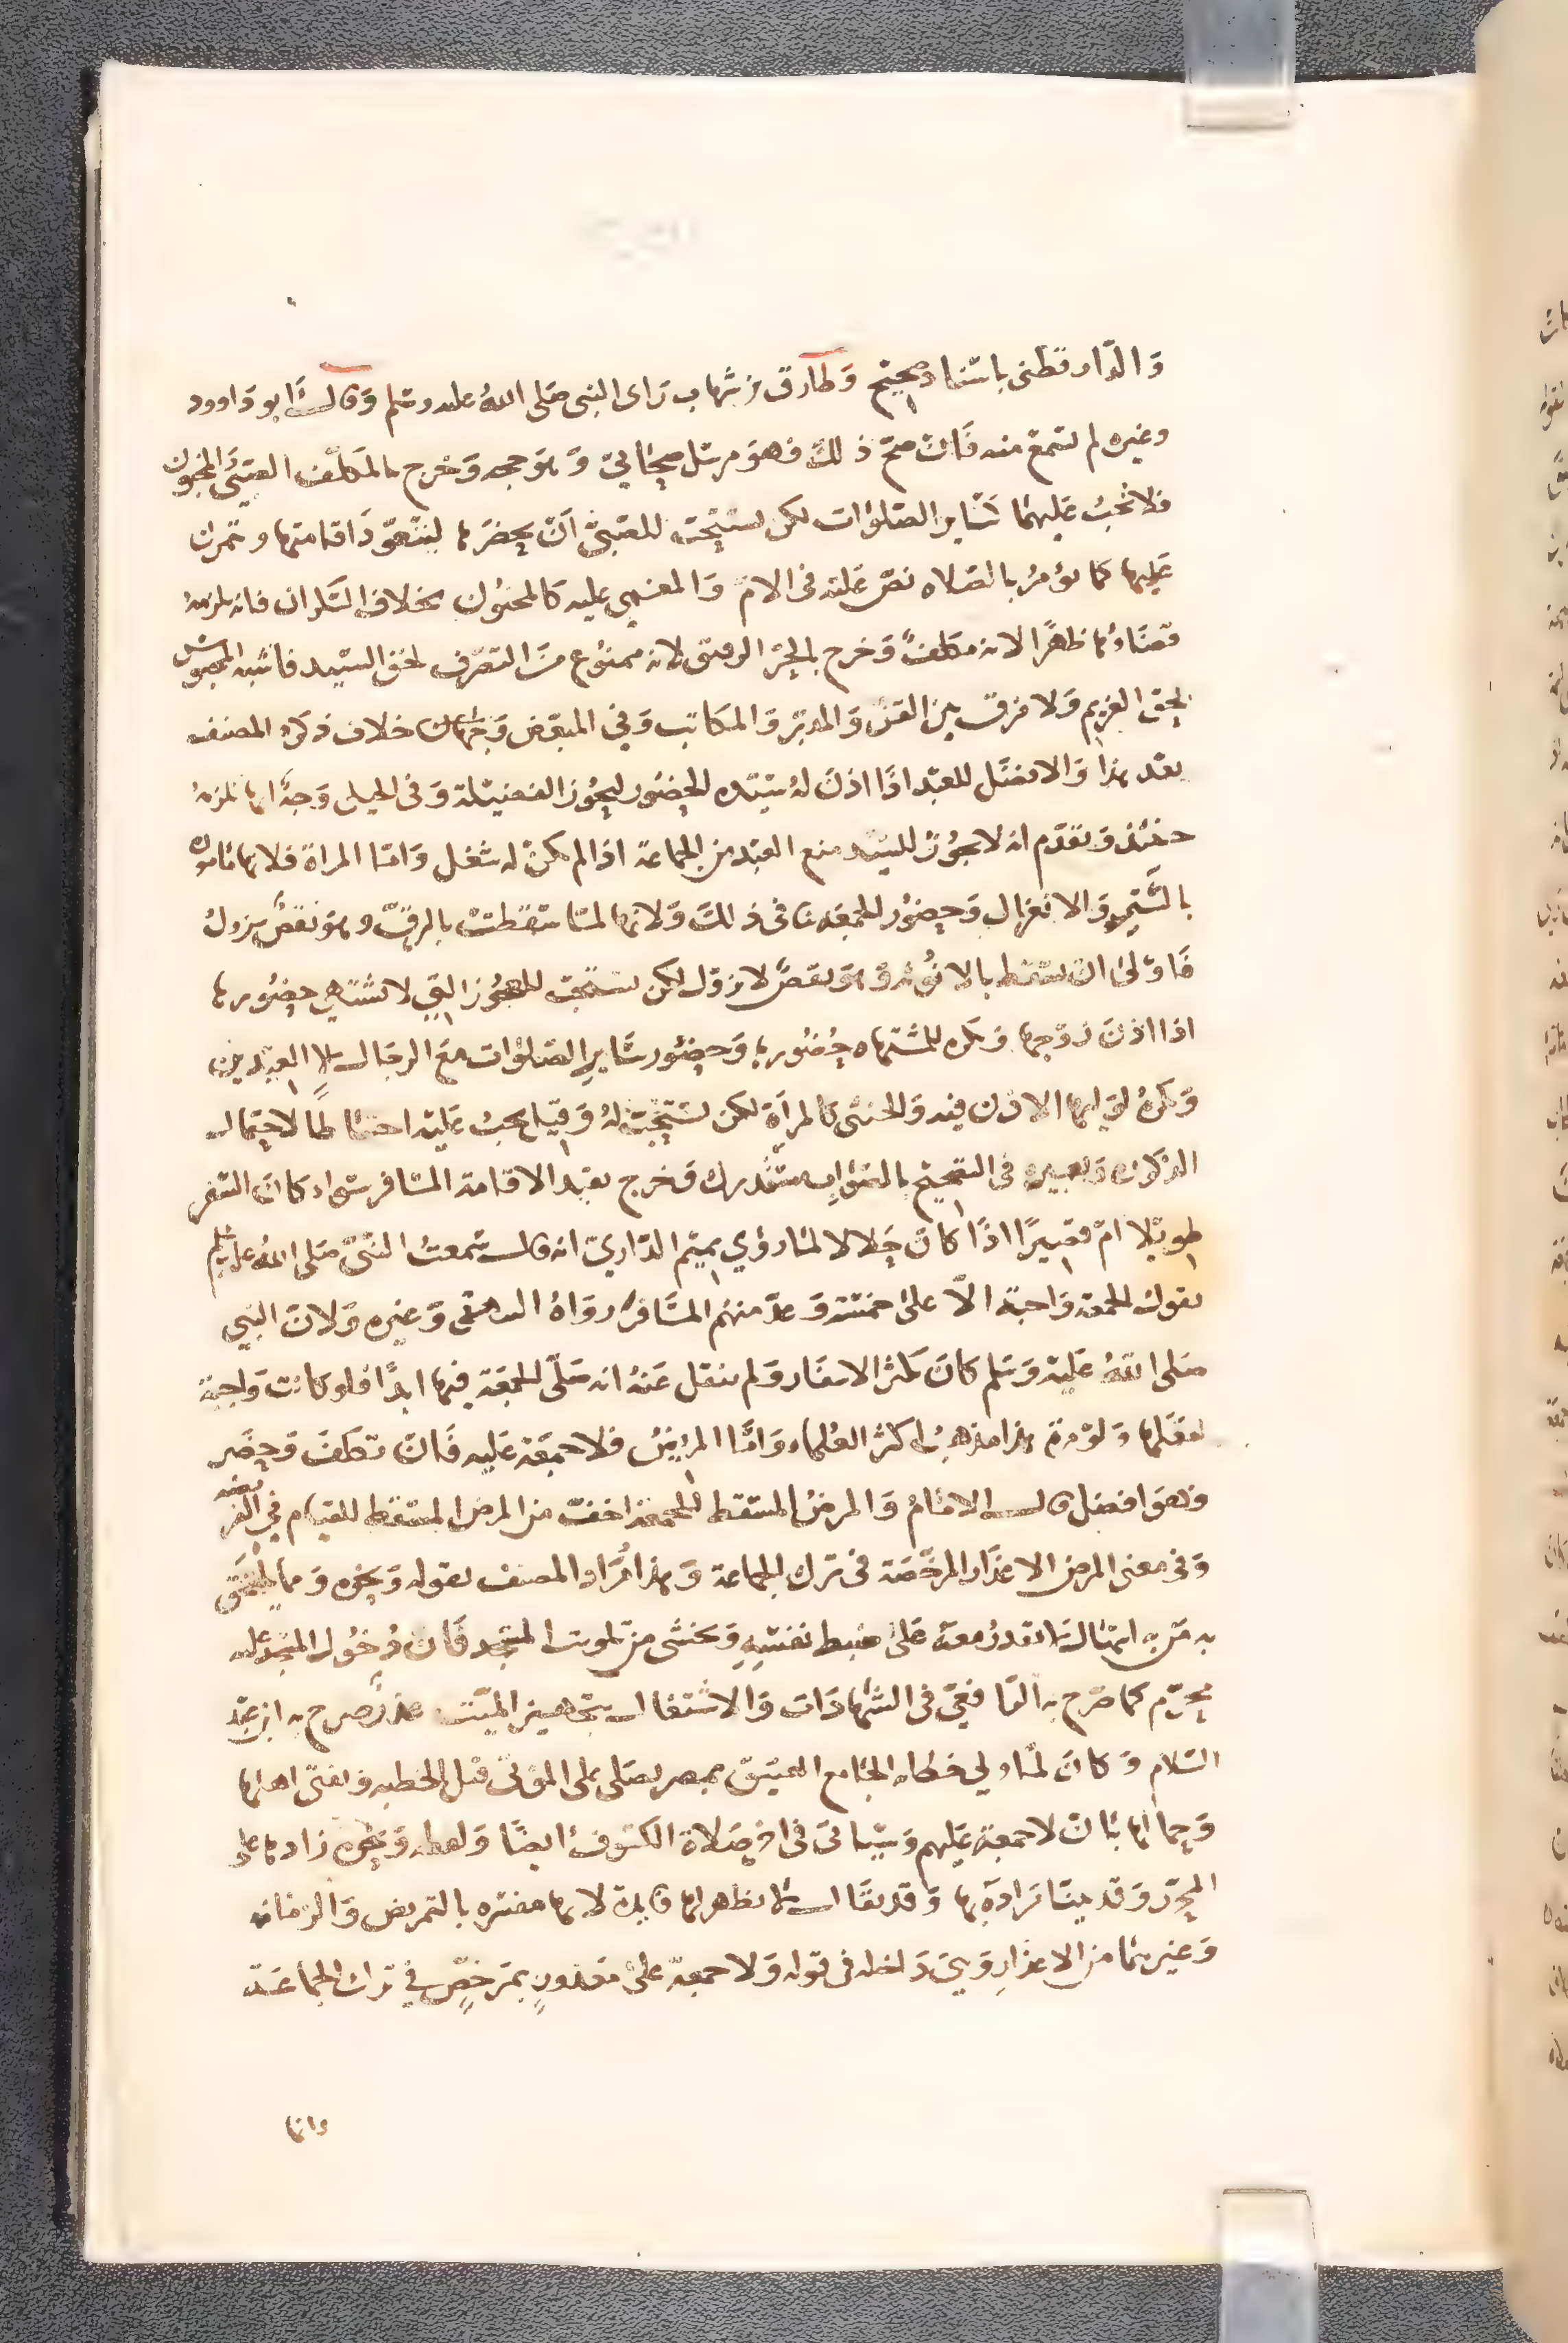 والدارقطني باسناد صحيح وطارق بن شهاب راى النبي صلى الله عليه وسلم وقال ابو داوود
وغيره لم يسمع منه فان صح ذلك فهو مرسل صحابي وهو حجه وخرج بالمكلف الصبي والمجنون
فلا تجب عليهما كسائر الصلوات لكن يستحب للصبي ان يحضرها ليتعود اقامتها ويتمرن
عليها كما يؤمر بالصلاه نص عليه في الام والمغمى عليه كالمجنون بخلاف السكران فانه يلزمه
قضاؤها ظهرا لانه مكلف وخرج بالحر الرقيق لانه ممنوع من التصرف لحق السيد فاشبه المحبوس
لحق الغريم ولا فرق بين القن والمدبر والمكاتب وفي المبعض وجهان خلاف ذكره المصنف
بعد هذا والافضل للعبد اذا اذن له سيده الحضور ليحوز الفضيلة وفي الحيلي وجه انها تلزمه
حينئذ وتقدم انه لا يجوز للسيد منع العبد من الجماعة اذا لم يكن له شغل واما المراة فلانها ماموره
بالستر والانعزال وحضور الجمعه ينافي ذلك ولانها لما سقطت بالرق وهو نقص يزول
فاولى ان تسقط بالانوثه وهو نقص لا يزول لكن يستحب للعجوز التي لا تشتهى حضورها
اذا اذن زوجها ويكره للمشتهاه حضورها وحضور سائر الصلوات مع الرجال لا العيدين
ويكره لوليها الاذن فيه والخنثى كالمرأة لكن يستحب له وقيل يجب عليه احتياطا لاحتمال
الذكوره وتعبيره في التصحيح بالصواب مستدرك وخرج بقيد الاقامة المسافر سواء كان السفر
طويلا ام قصيرا اذا كان حلالا لما روي تميم الداري انه قال سمعت النبي صلى الله عليه وسلم
يقول الجمعة واجبة الا على خمسة وعد منهم المسافر رواه البيهقي وغيره ولان النبي
صلى الله عليه وسلم كان يكثر الاسفار ولم ينقل عنه انه صلى الجمعة فيها ابدا فلو كانت واجبة
لفعلها ولو مرة هذا مذهب اكثر العلماء واما المريض فلا جمعة عليه فان تكلف وحضر
فهو افضل قال الامام والمرض المسقط للجمعة اخف من المرض المسقط للقيام في الفريضه
وفي معنى المرض الاعذار المرخصة في ترك الجماعة وهذا مراد المصنف بقوله ونحوه ومما يلتحق
به من به اسهال لا يقدر معه على ضبط نفسه ويخشى من تلويث المسجد فان دخول المسجد عليه
محرم كما صرح به الرافعي في الشهادات والاشتغال بتجهيز الميت عذر صرح به ابن عبد
السلام وكان لما ولي خطابه الجامع العتيق بمصر يصلي على الموتى قبل الخطبه ويفتي اهلها
وحمالها بان لا جمعة عليهم وسياتي في اخر صلاة الكسوف ايضا ولفظه ونحوه زادها على
المحرر وقد بينا مراده بها وقد يقال لا يظهر لها فايدة لانها مفسره بالتمريض والزمانه
وغيرهما من الاعذار وهي داخله في قوله ولا جمعة على معذور بمرخص في ترك الجماعة
وانها